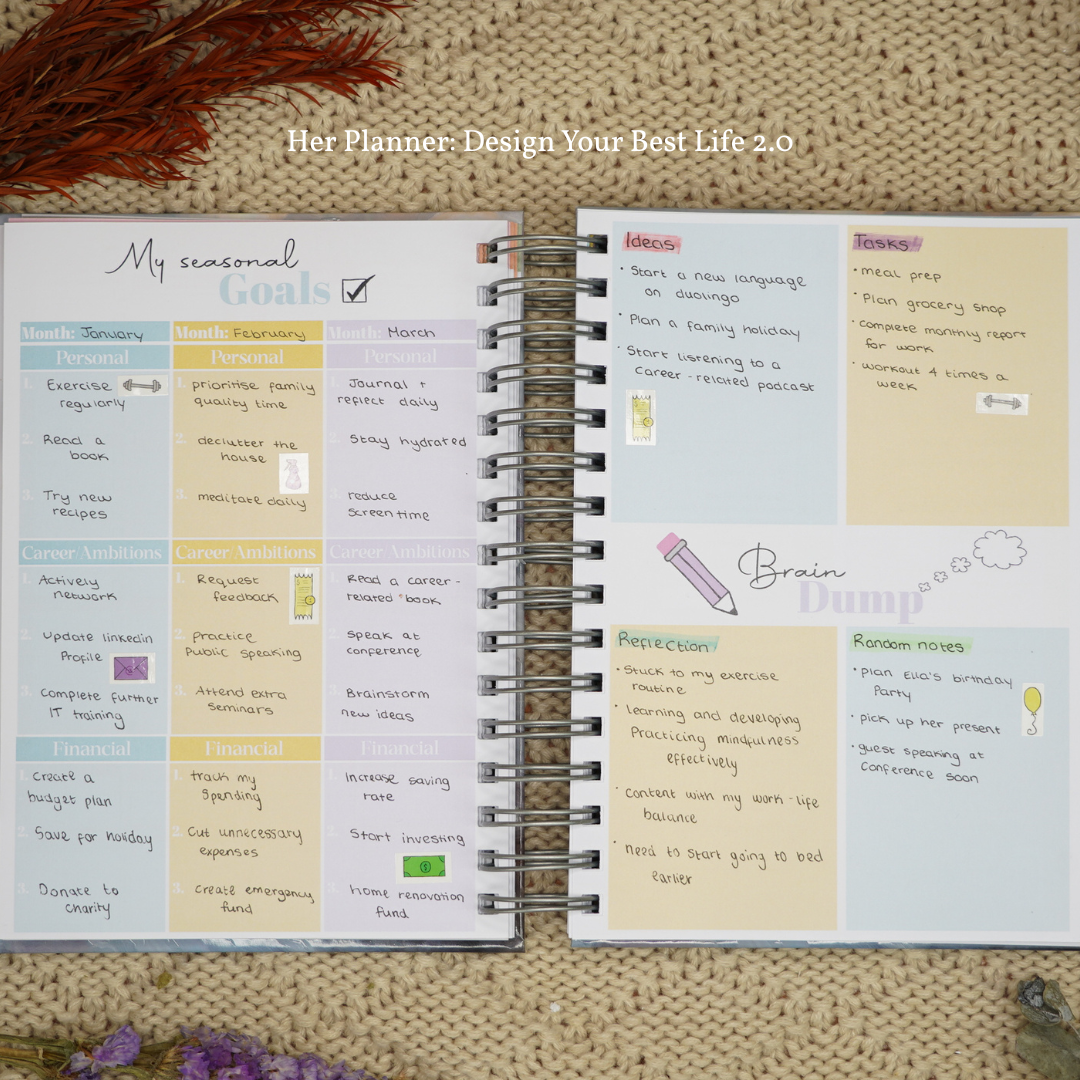 Her Planner: Design Your Best Life 2.0
My seasonal
Goals
Month: January
Personal
1. Exercise
regularly
2. Read a
book
3. Try new
recipes
Career/Ambitions
1. Actively
network
2. Update linkedin
Profile
3. Complete further
IT training
Financial
1. Create a
budget plan
2. Save for holiday
3. Donate to
charity
Month: February
Personal
1. prioritise family
quality time
2. declutter the
house
3. meditate daily
Career/Ambitions
1. Request
feedback
2. Practice
Public speaking
3. Attend extra
seminars
Financial
1. track my
spending
2. Cut unnecessary
expenses
3. create emergency
fund
Month: March
Personal
1. Journal +
reflect daily
2. Stay hydrated
3. reduce
screen time
Career/Ambitions
1. Read a career-
related book
2. speak at
conference
3. Brainstorm
new ideas
Financial
1. Increase saving
rate
2. Start investing
3. home renovation
fund
Ideas
• Start a new language
on duolingo
• Plan a family holiday
• Start listening to a
career-related podcast
Tasks
• meal prep
• Plan grocery shop
• complete monthly report
for work
• workout 4 times a
week
Brain
Dump
Reflection
• Stuck to my exercise
routine
• learning and developing
Practicing mindfulness
effectively
• content with my work-life
balance
• need to start going to bed
earlier
Random notes
• plan Ella's birthday
Party
• pick up her present
• guest speaking at
Conference soon